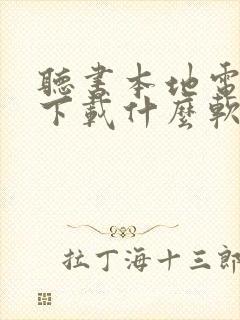 聽書本地電
下載什麼軟
拉丁海十三郎